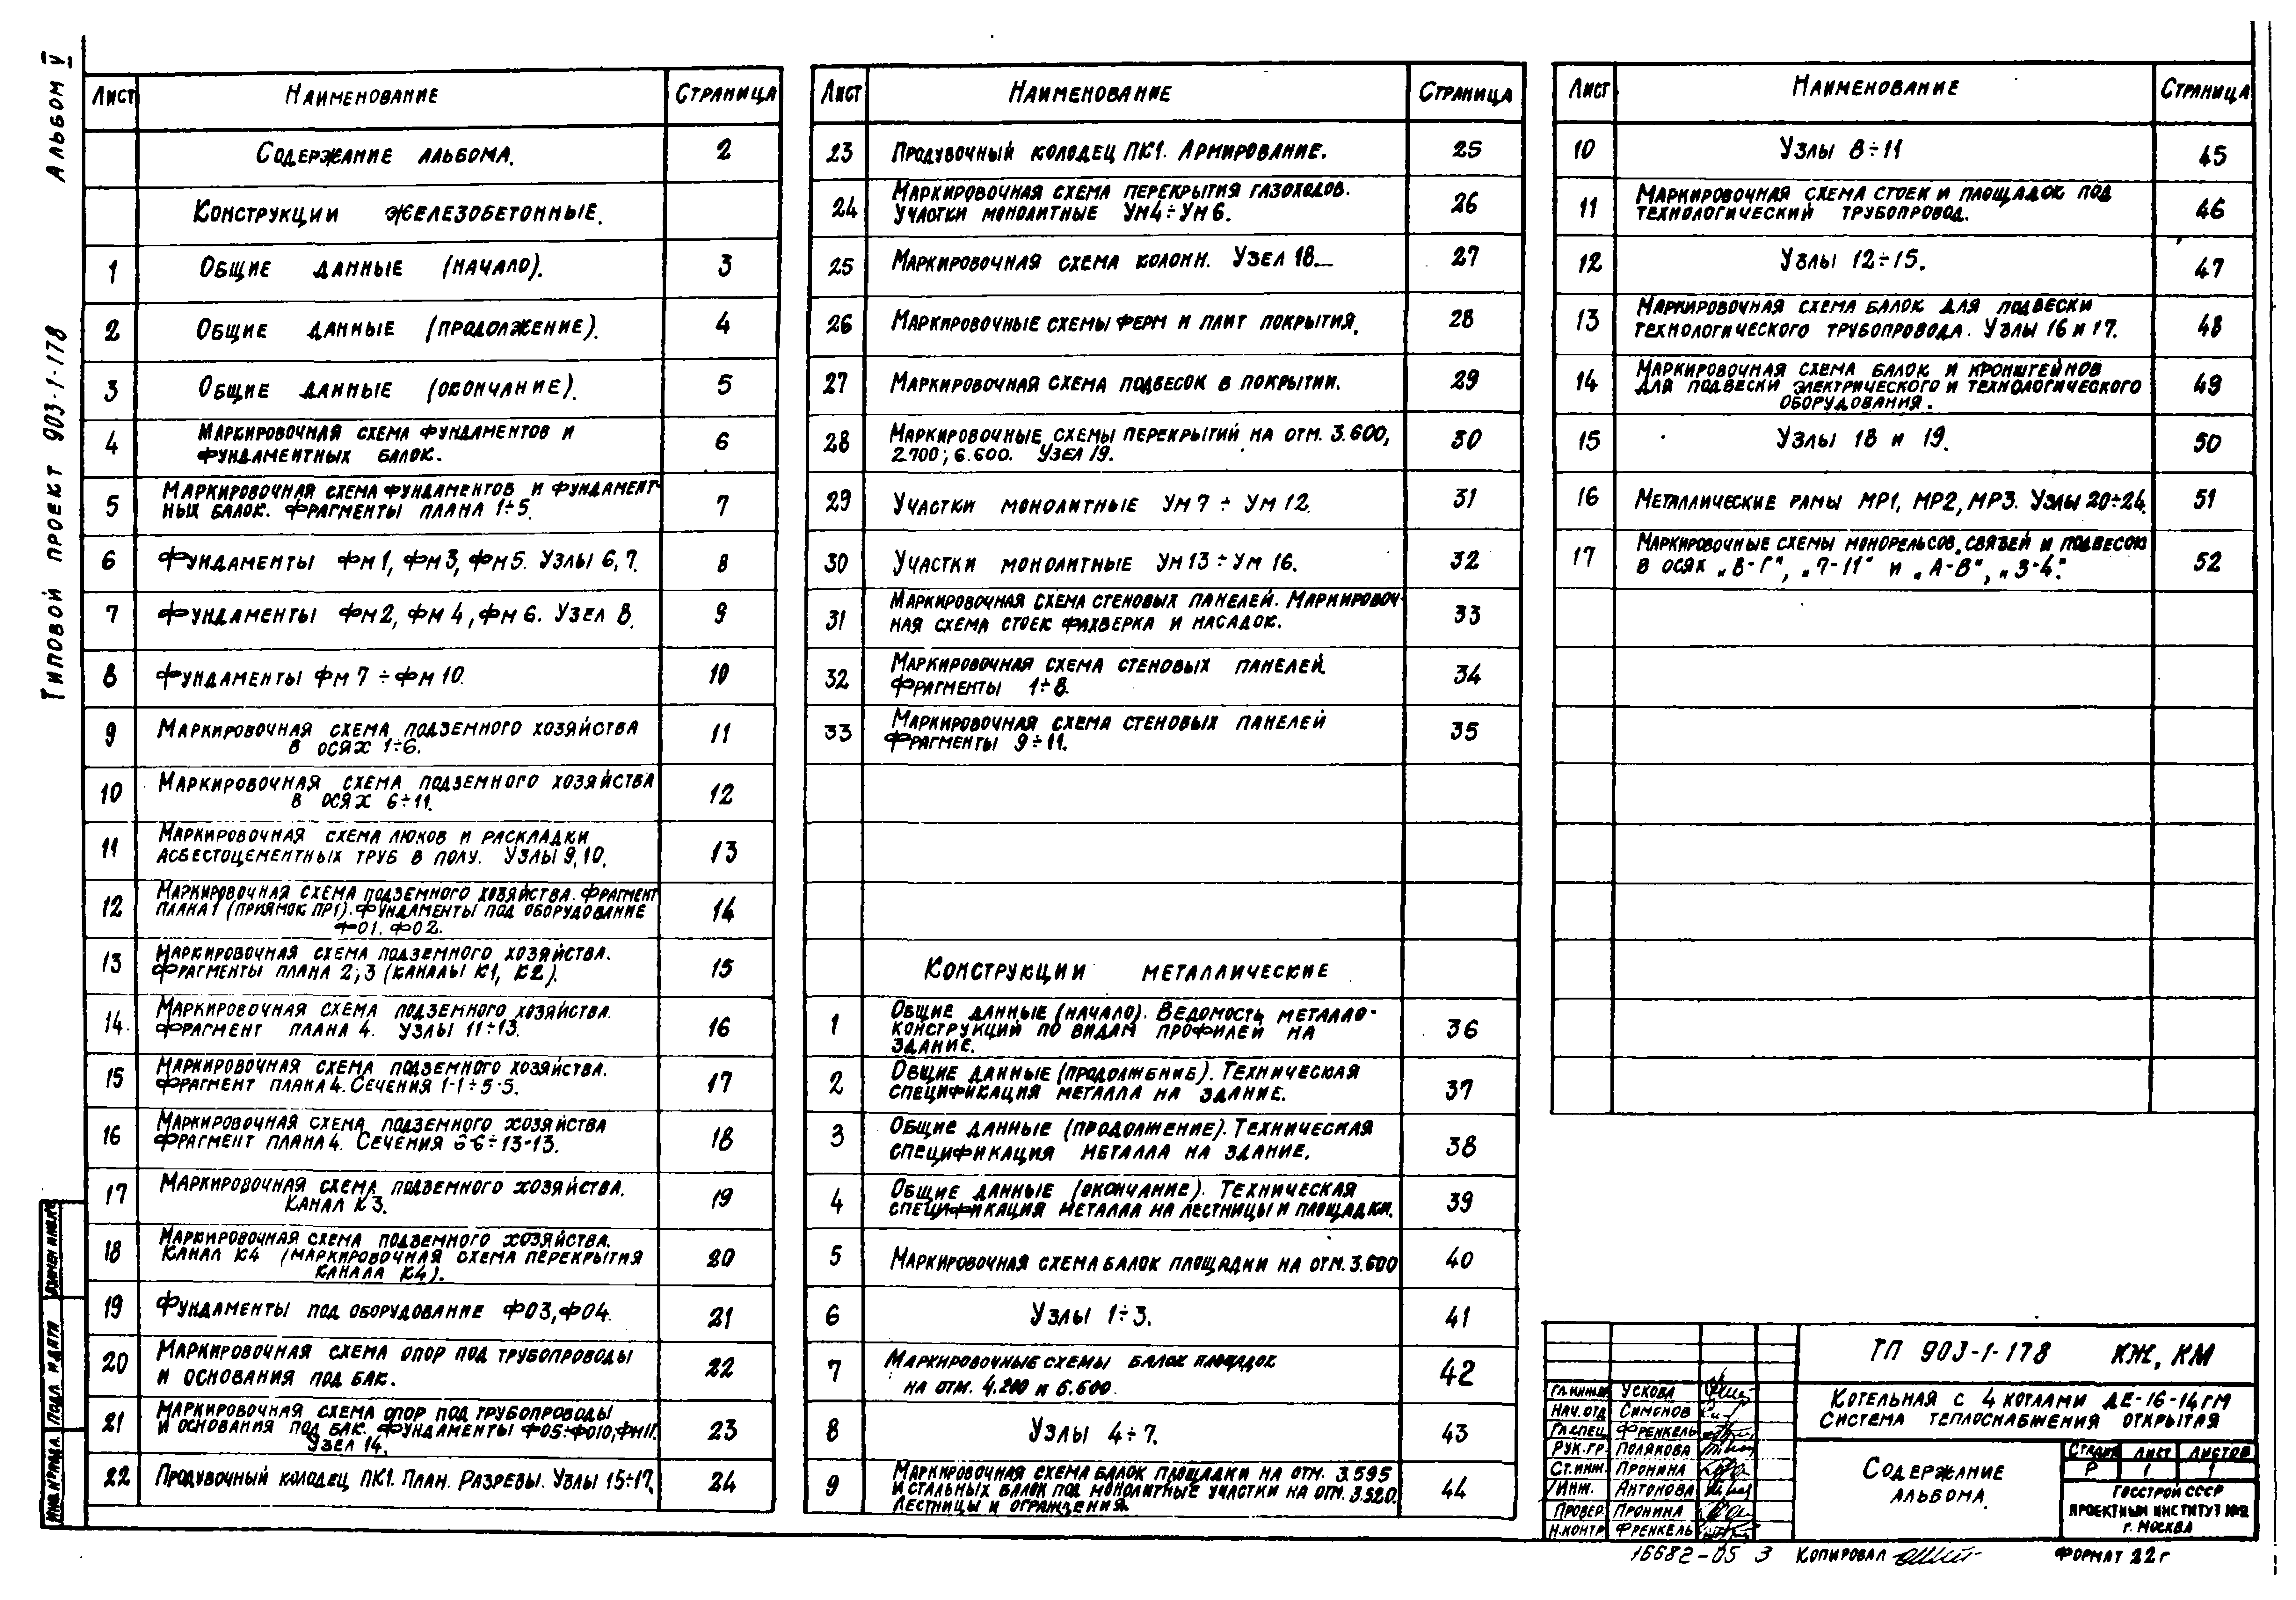 Альбом V
Типовой проект 903-1-178
Лист Наименование Страница
Содержание альбома. 2
Конструкции железобетонные.
1 Общие данные (начало). 3
2 Общие данные (продолжение). 4
3 Общие данные (окончание). 5
4 Маркировочная схема фундаментов и 6
фундаментных балок.
5 Маркировочная схема фундаментов и фундамент- 7
ных балок. Фрагменты плана 1÷5.
6 Фундаменты Фм1, Фм3, Фм5. Узлы 6,7. 8
7 Фундаменты Фм2, Фм4, Фм6. Узел 8. 9
8 Фундаменты Фм7÷Фм10. 10
9 Маркировочная схема подземного хозяйства 11
в осях 1÷6.
10 Маркировочная схема подземного хозяйства 12
в осях 6÷11.
11 Маркировочная схема люков и раскладки 13
асбестоцементных труб в полу. Узлы 9,10.
12 Маркировочная схема подземного хозяйства. Фрагмент 14
плана 1 (приямок ПР1). Фундаменты под оборудование
Ф01. Ф02.
13 Маркировочная схема подземного хозяйства. 15
Фрагменты плана 2;3 (каналы К1, К2).
14 Маркировочная схема подземного хозяйства. 16
Фрагмент плана 4. Узлы 11÷13.
15 Маркировочная схема подземного хозяйства. 17
Фрагмент плана 4. Сечения 1-1÷5-5.
16 Маркировочная схема подземного хозяйства 18
Фрагмент плана 4. Сечения 6-6÷13-13.
17 Маркировочная схема подземного хозяйства. 19
Канал К3.
18 Маркировочная схема подземного хозяйства. 20
Канал К4 (маркировочная схема перекрытия
канала К4).
19 Фундаменты под оборудование Ф03, Ф04. 21
20 Маркировочная схема опор под трубопроводы 22
и основания под бак.
21 Маркировочная схема опор под трубопроводы 23
и основания под бак. Фундаменты Ф05÷Ф010, Фм11.
Узел 14.
22 Продувочный колодец ПК1. План. Разрезы. Узлы 15÷17. 24
Лист Наименование Страница
23 Продувочный колодец ПК1. Армирование. 25
24 Маркировочная схема перекрытия газоходов. 26
Участки монолитные Ум4÷Ум6.
25 Маркировочная схема колонн. Узел 18. 27
26 Маркировочные схемы ферм и плит покрытия. 28
27 Маркировочная схема подвесок в покрытии. 29
28 Маркировочные схемы перекрытий на отм. 3.600, 30
2.700; 6.600. Узел 19.
29 Участки монолитные Ум7÷Ум12. 31
30 Участки монолитные Ум13÷Ум16. 32
31 Маркировочная схема стеновых панелей. Маркировоч- 33
ная схема стоек фахверка и насадок.
32 Маркировочная схема стеновых панелей 34
Фрагменты 1÷8.
33 Маркировочная схема стеновых панелей 35
Фрагменты 9÷11.
Конструкции металлические
1 Общие данные (начало). Ведомость металло- 36
конструкций по видам профилей на
здание.
2 Общие данные (продолжение). Техническая 37
спецификация металла на здание.
3 Общие данные (продолжение). Техническая 38
спецификация металла на здание.
4 Общие данные (окончание). Техническая 39
спецификация металла на лестницы и площадки.
5 Маркировочная схема балок площадки на отм. 3.600 40
6 Узлы 1÷3. 41
7 Маркировочные схемы балок площадок 42
на отм. 4.200 и 6.600.
8 Узлы 4÷7. 43
9 Маркировочная схема балок площадки на отм. 3.595 44
и стальных балок под монолитные участки на отм. 3.520.
Лестницы и ограждения.
Лист Наименование Страница
10 Узлы 8÷11 45
11 Маркировочная схема стоек и площадок под 46
технологический трубопровод.
12 Узлы 12÷15. 47
13 Маркировочная схема балок для подвески 48
технологического трубопровода. Узлы 16 и 17.
14 Маркировочная схема балок и кронштейнов 49
для подвески электрического и технологического
оборудования.
15 Узлы 18 и 19. 50
16 Металлические рамы МР1, МР2, МР3. Узлы 20÷24. 51
17 Маркировочные схемы монорельсов, связей и подвесок 52
в осях „В-Г", „7-11" и „А-В", „3-4".
ТП 903-1-178 КЖ, КМ
Гл.инж.пр Ускова
Нач.отд Симонов
Гл.спец Френкель
Рук.гр. Полякова
Ст.инж. Пронина
Инж. Антонова
Провер Пронина
Н.контр Френкель
Котельная с 4 котлами ДЕ-16-14ГМ
Система теплоснабжения открытая
Содержание
альбома.
Стадия Лист Листов
Р 1 1
Госстрой СССР
Проектный институт №2
г. Москва
16682-05 3 Копировал Формат 22г
Взамен инв.№
Подп. и дата
Инв.№ подл.